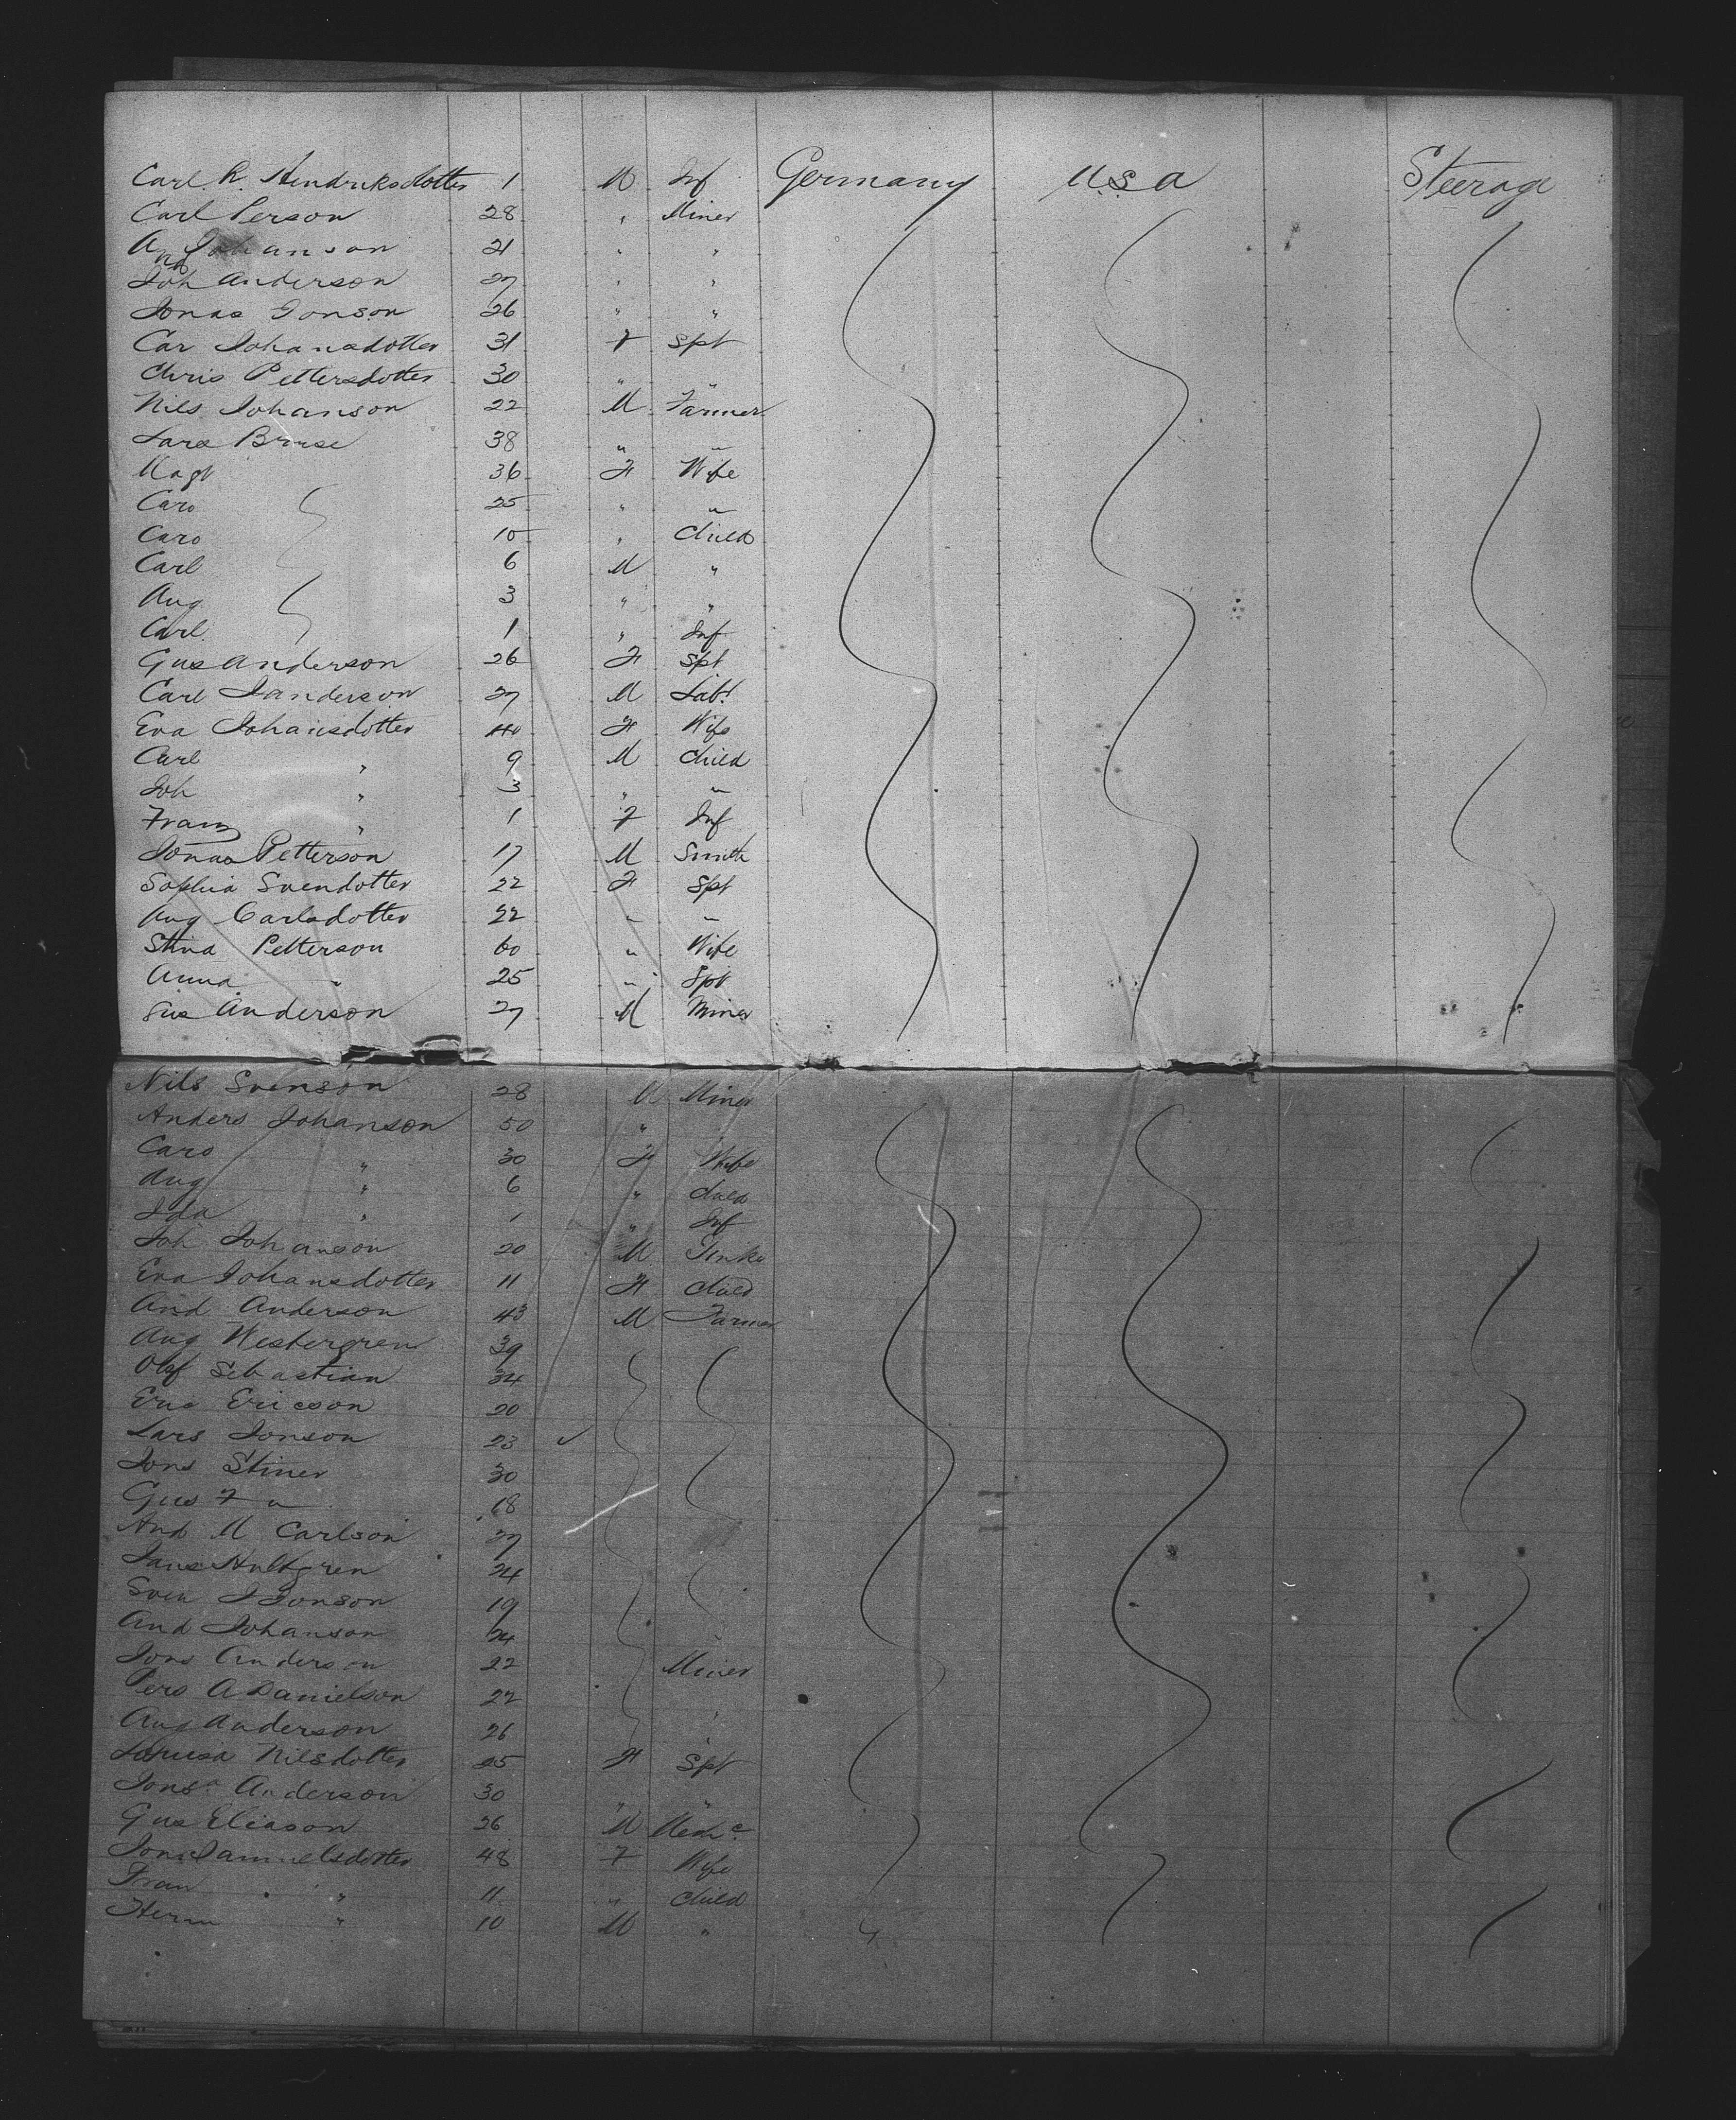 Carl. R. Hendriksdotter 1 M Inf Germany U.S.A Steerage
Carl Person 28 " Miner
And Johanson 21 " "
Joh Anderson 27 " "
Jonas Jonson 26 " "
Car Johansdotter 31 F Spt
Chris Pettersdotter 30 " "
Nils Johanson 22 M Farmer
Lars Bruse 38 " "
Magt 36 F Wife
Caro 25 " "
Caro 10 " Child
Carl 6 M "
Aug 3 " "
Carl 1 " Inf
Gus Anderson 26 F Spt
Carl Sanderson 27 M Labr
Eva Johansdotter 40 F Wife
Carl " 9 M Child
Joh " 3 " "
Franz " 1 F Inf
Jonas Petterson 17 M Smith
Sophia Svendotter 22 F Spt
Aug Carlsdotter 22 " "
Stina Petterson 60 " Wife
Anna " 25 " Spt
Gus Anderson 27 M Miner
Nils Svenson 28 M Miner
Anders Johanson 50 "
Caro " 30 F Wife
Aug " 6 " Child
Ida " 1 " Inf
Joh Johanson 20 M
Eva Johansdotter 11 F Child
And Anderson 43 M Farmer
Aug Westergren 39
Olof Sebastian 34
Eric Ericson 20
Lars Jonson 23 ✓
Jons Stiner 30
Gus F " 18
And M Carlson 27
Hultgren 24
Sven J Jonson 19
And Johanson 24
Jons Anderson 22 Miner
Pers A Danielson 22 "
Aug Anderson 26 "
Lovisa Nilsdotter 25 F Spt
Jonsa Anderson 30 " "
Gus Eliason 26 M Mech c
Jon Samuelsdotter 48 F Wife
Fran " 11 " Child
Herm " 10 M "